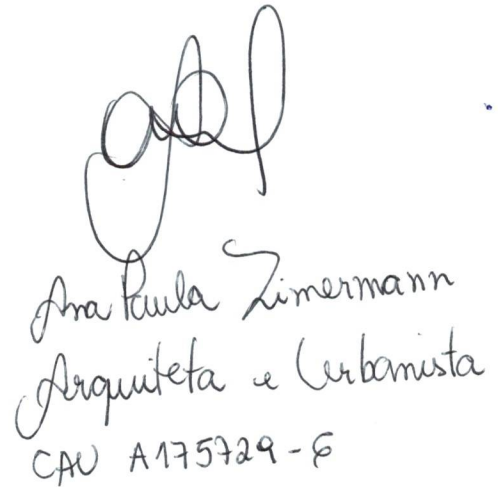 Ana Paula Zimermann
Arquiteta e Urbanista
CAU A175729-6